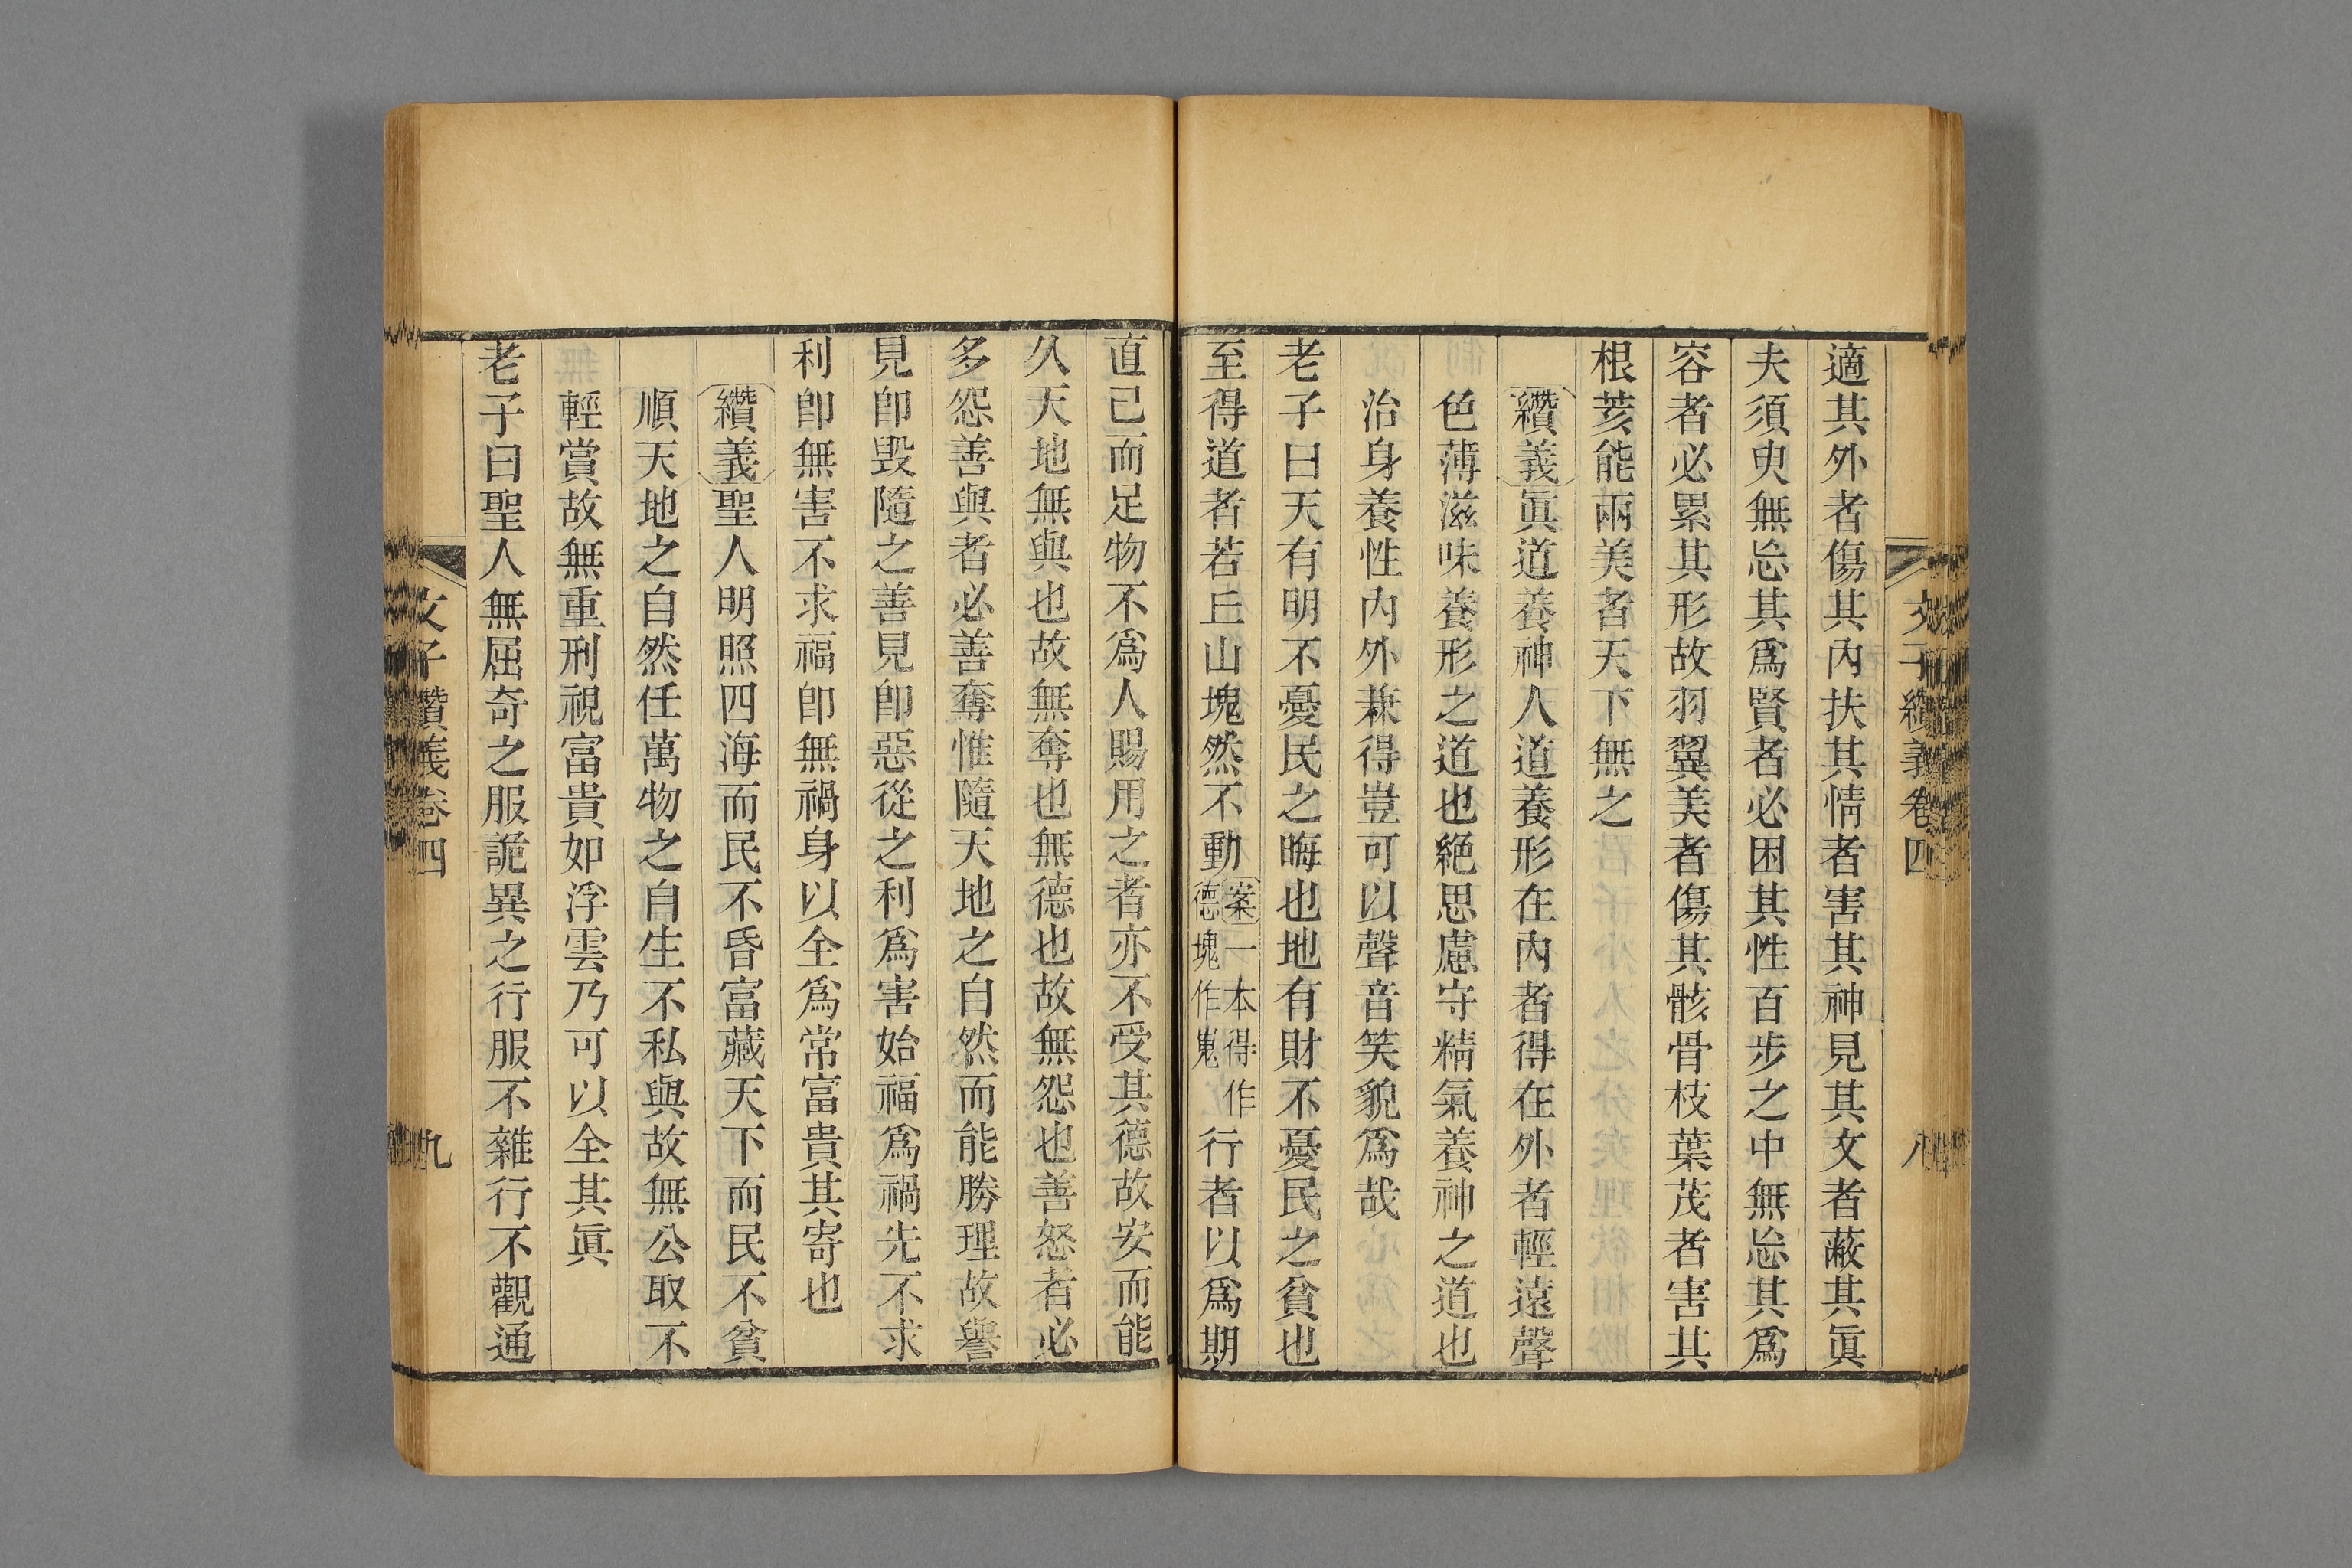 文子纘義卷四 八
適其外者傷其內扶其情者害其神見其文者蔽其眞
夫須臾無忘其爲賢者必困其性百步之中無忘其爲
容者必累其形故羽翼美者傷其骸骨枝葉茂者害其
根荄能兩美者天下無之
纘義眞道養神人道養形在內者得在外者輕遠聲
色薄滋味養形之道也絕思慮守精氣養神之道也
治身養性內外兼得豈可以聲音笑貌爲哉
老子曰天有明不憂民之晦也地有財不憂民之貧也
至得道者若丘山塊然不動案一本得作德塊作嵬行者以爲期
直己而足物不爲人賜用之者亦不受其德故安而能
久天地無與也故無奪也無德也故無怨也善怒者必
多怨善與者必善奪惟隨天地之自然而能勝理故譽
見卽毀隨之善見卽惡從之利爲害始福爲禍先不求
利卽無害不求福卽無禍身以全爲常富貴其寄也
纘義聖人明照四海而民不昏富藏天下而民不貧
順天地之自然任萬物之自生不私與故無公取不
輕賞故無重刑視富貴如浮雲乃可以全其眞
老子曰聖人無屈奇之服詭異之行服不雜行不觀通
文子纘義卷四 九